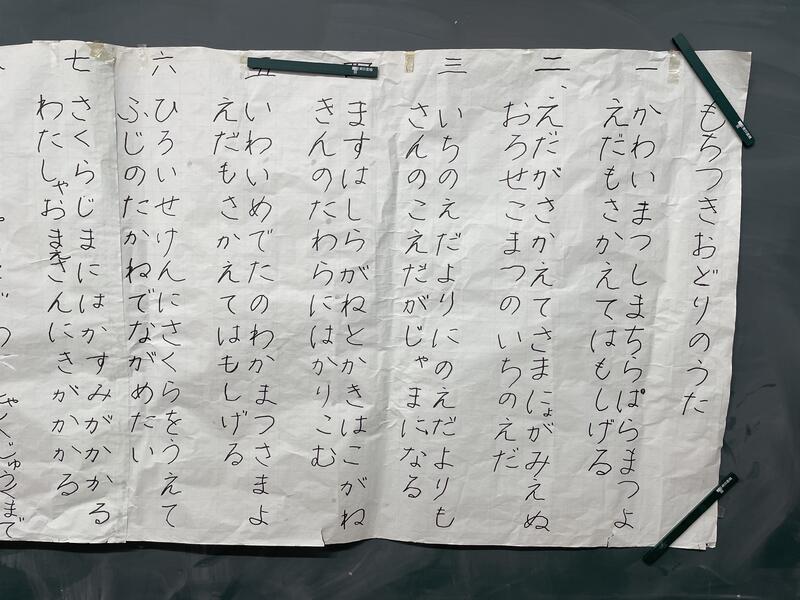 もちつきおどりのうた
一
かわいまつしまちらぱらまつよ
えだもさかえてはもしげる
二
えだがさかえてさまにょがみえぬ
おろせこまつのいちのえだ
三
いちのえだよりにのえだよりも
さんのこえだがじゃまになる
ますはしらがねとかきはこがね
きんのたわらにはかりこむ
五
いわいめでたのわかまつさまよ
えだもさかえてはもしげる
六
ひろいせけんにさくらをうえて
ふじのたかねでながめたい
七
さくらじまにはかすみがかかる
わたしゃおまきんにきがかかる